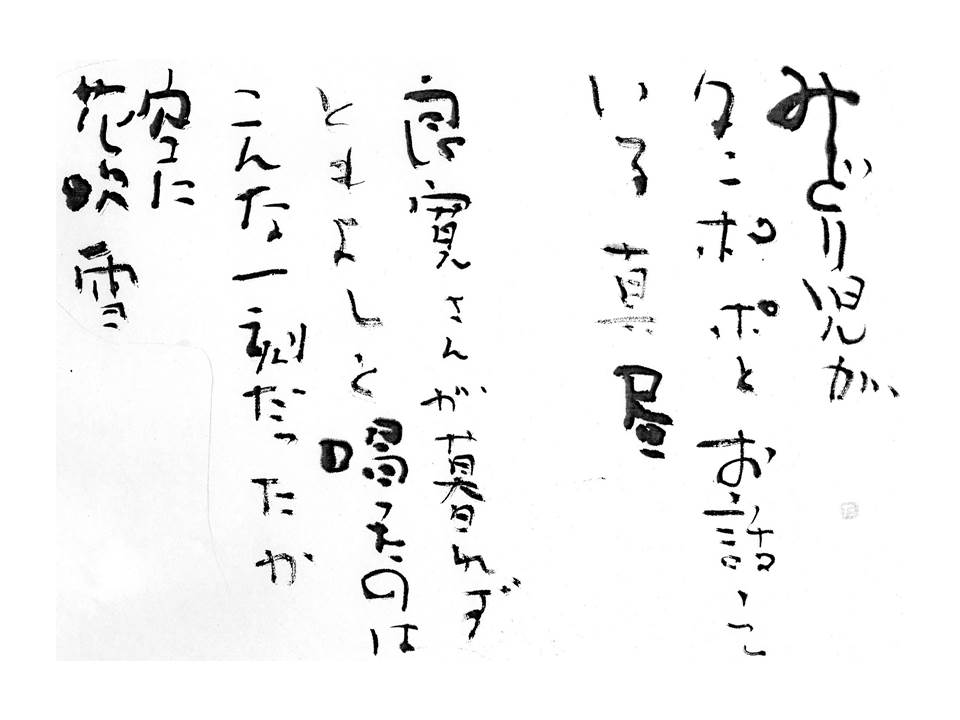 みどり児が
タンポポとお話して
いる真昼
良寛さんが暮れず
ともよしと唱ったのは
こんな一刻だったか
空に
花吹雪